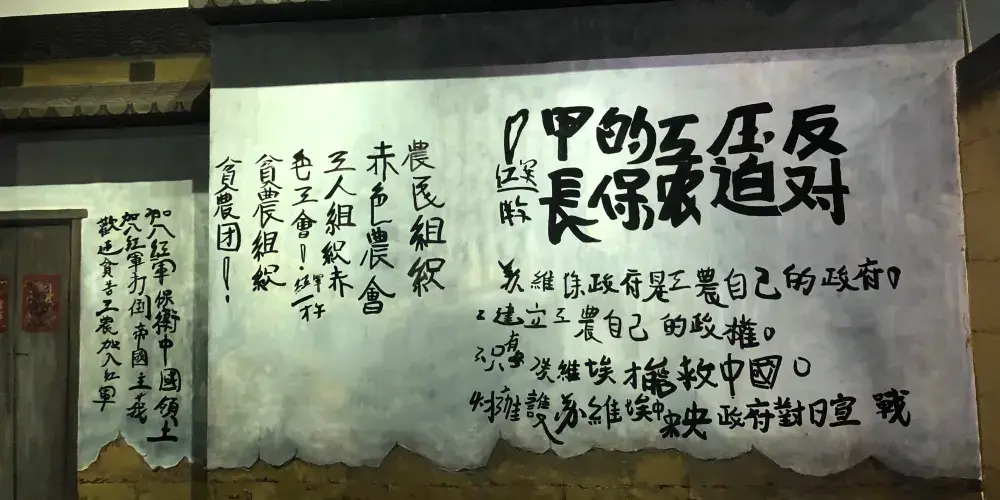 反对
压迫
工农
的保
甲長！
维埃政府是工農自己的政府。
建立工農自己的政權。
只有維埃才能救中國。
擁護苏維埃中央政府對日宣戰
農民組織
赤色農會
工人組織赤
色工會！
貧農組織
貧農团！
加入紅軍保衛中國領土
加入紅軍打倒帝國主義
歡迎貧苦工農加入紅軍